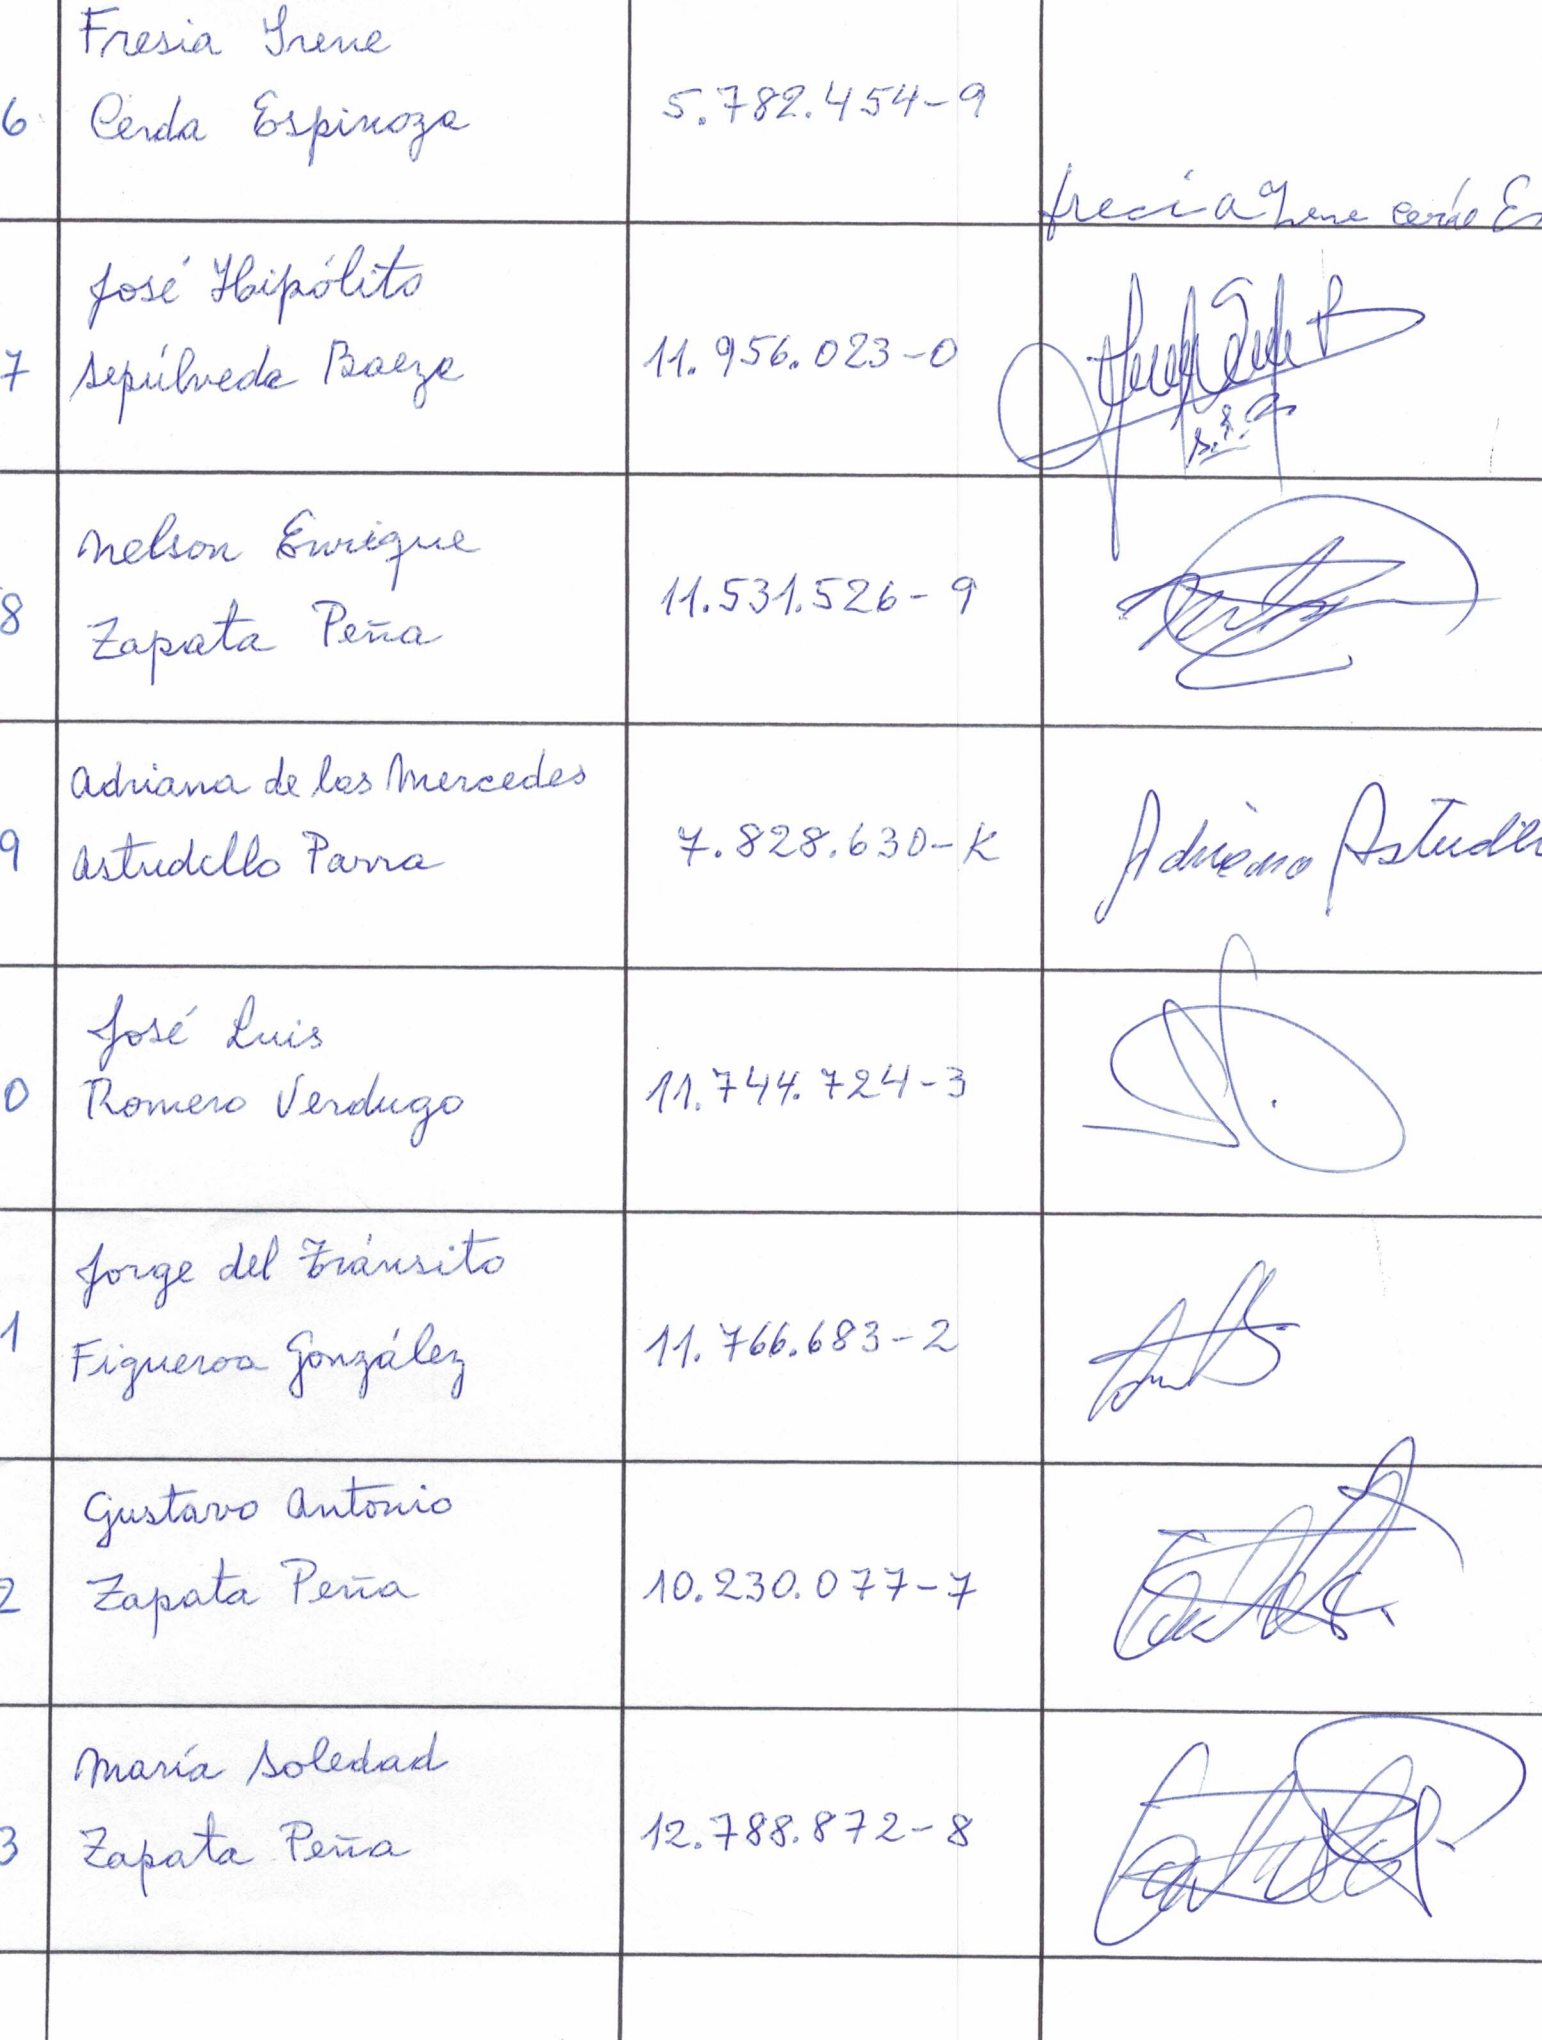 Fresia Irene
6 Cerda Espinoza 5.782.454-9
frecia Irene cerda Es
José Hipólito
7 Sepúlveda Baeza 11.956.023-0
Nelson Enrique
8 Zapata Peña 11.531.526-9
Adriana de las Mercedes
9 Astudillo Parra 7.828.630-K Adriana Astudill
José Luis
0 Romero Verdugo 11.744.724-3
Jorge del Tránsito
1 Figueroa González 11.766.683-2
Gustavo Antonio
2 Zapata Peña 10.230.077-7
María Soledad
3 Zapata Peña 12.788.872-8